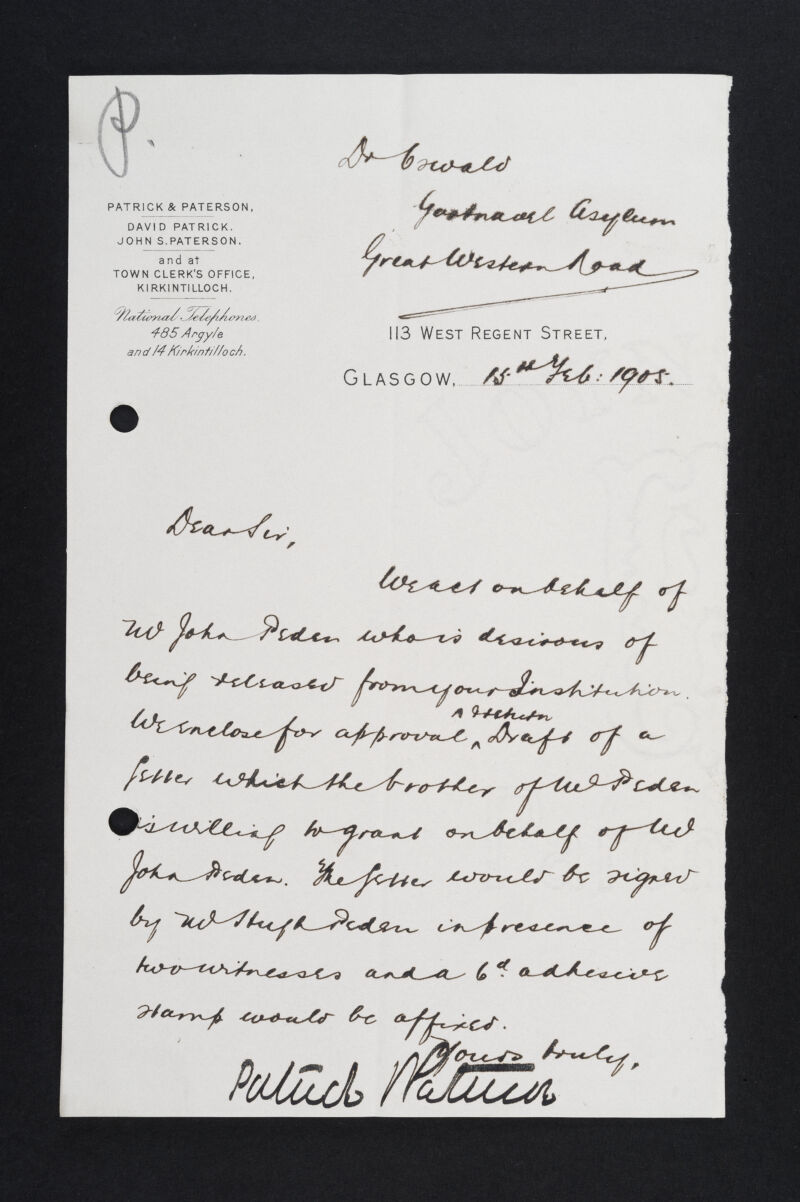 P.
Dr Oswald
Gartnavel Asylum
Great Western Road
PATRICK & PATERSON,
DAVID PATRICK.
JOHN S. PATERSON.
and at
TOWN CLERK'S OFFICE,
KIRKINTILLOCH.
National Telephones.
485 Argyle
and 14 Kirkintilloch.
113 WEST REGENT STREET,
GLASGOW, 15th Feb: 1905.
Dear Sir,
We act on behalf of
Mr John Peden who is desirous of
being released from your Institution.
We enclose for approval ^ & return Draft of a
letter which the brother of Mr Peden
is willing to grant on behalf of Mr
John Peden. The letter would be signed
by Mr Hugh Peden in presence of
two witnesses and a 6d. adhesive
stamp would be affixed.
Yours truly,
Patrick